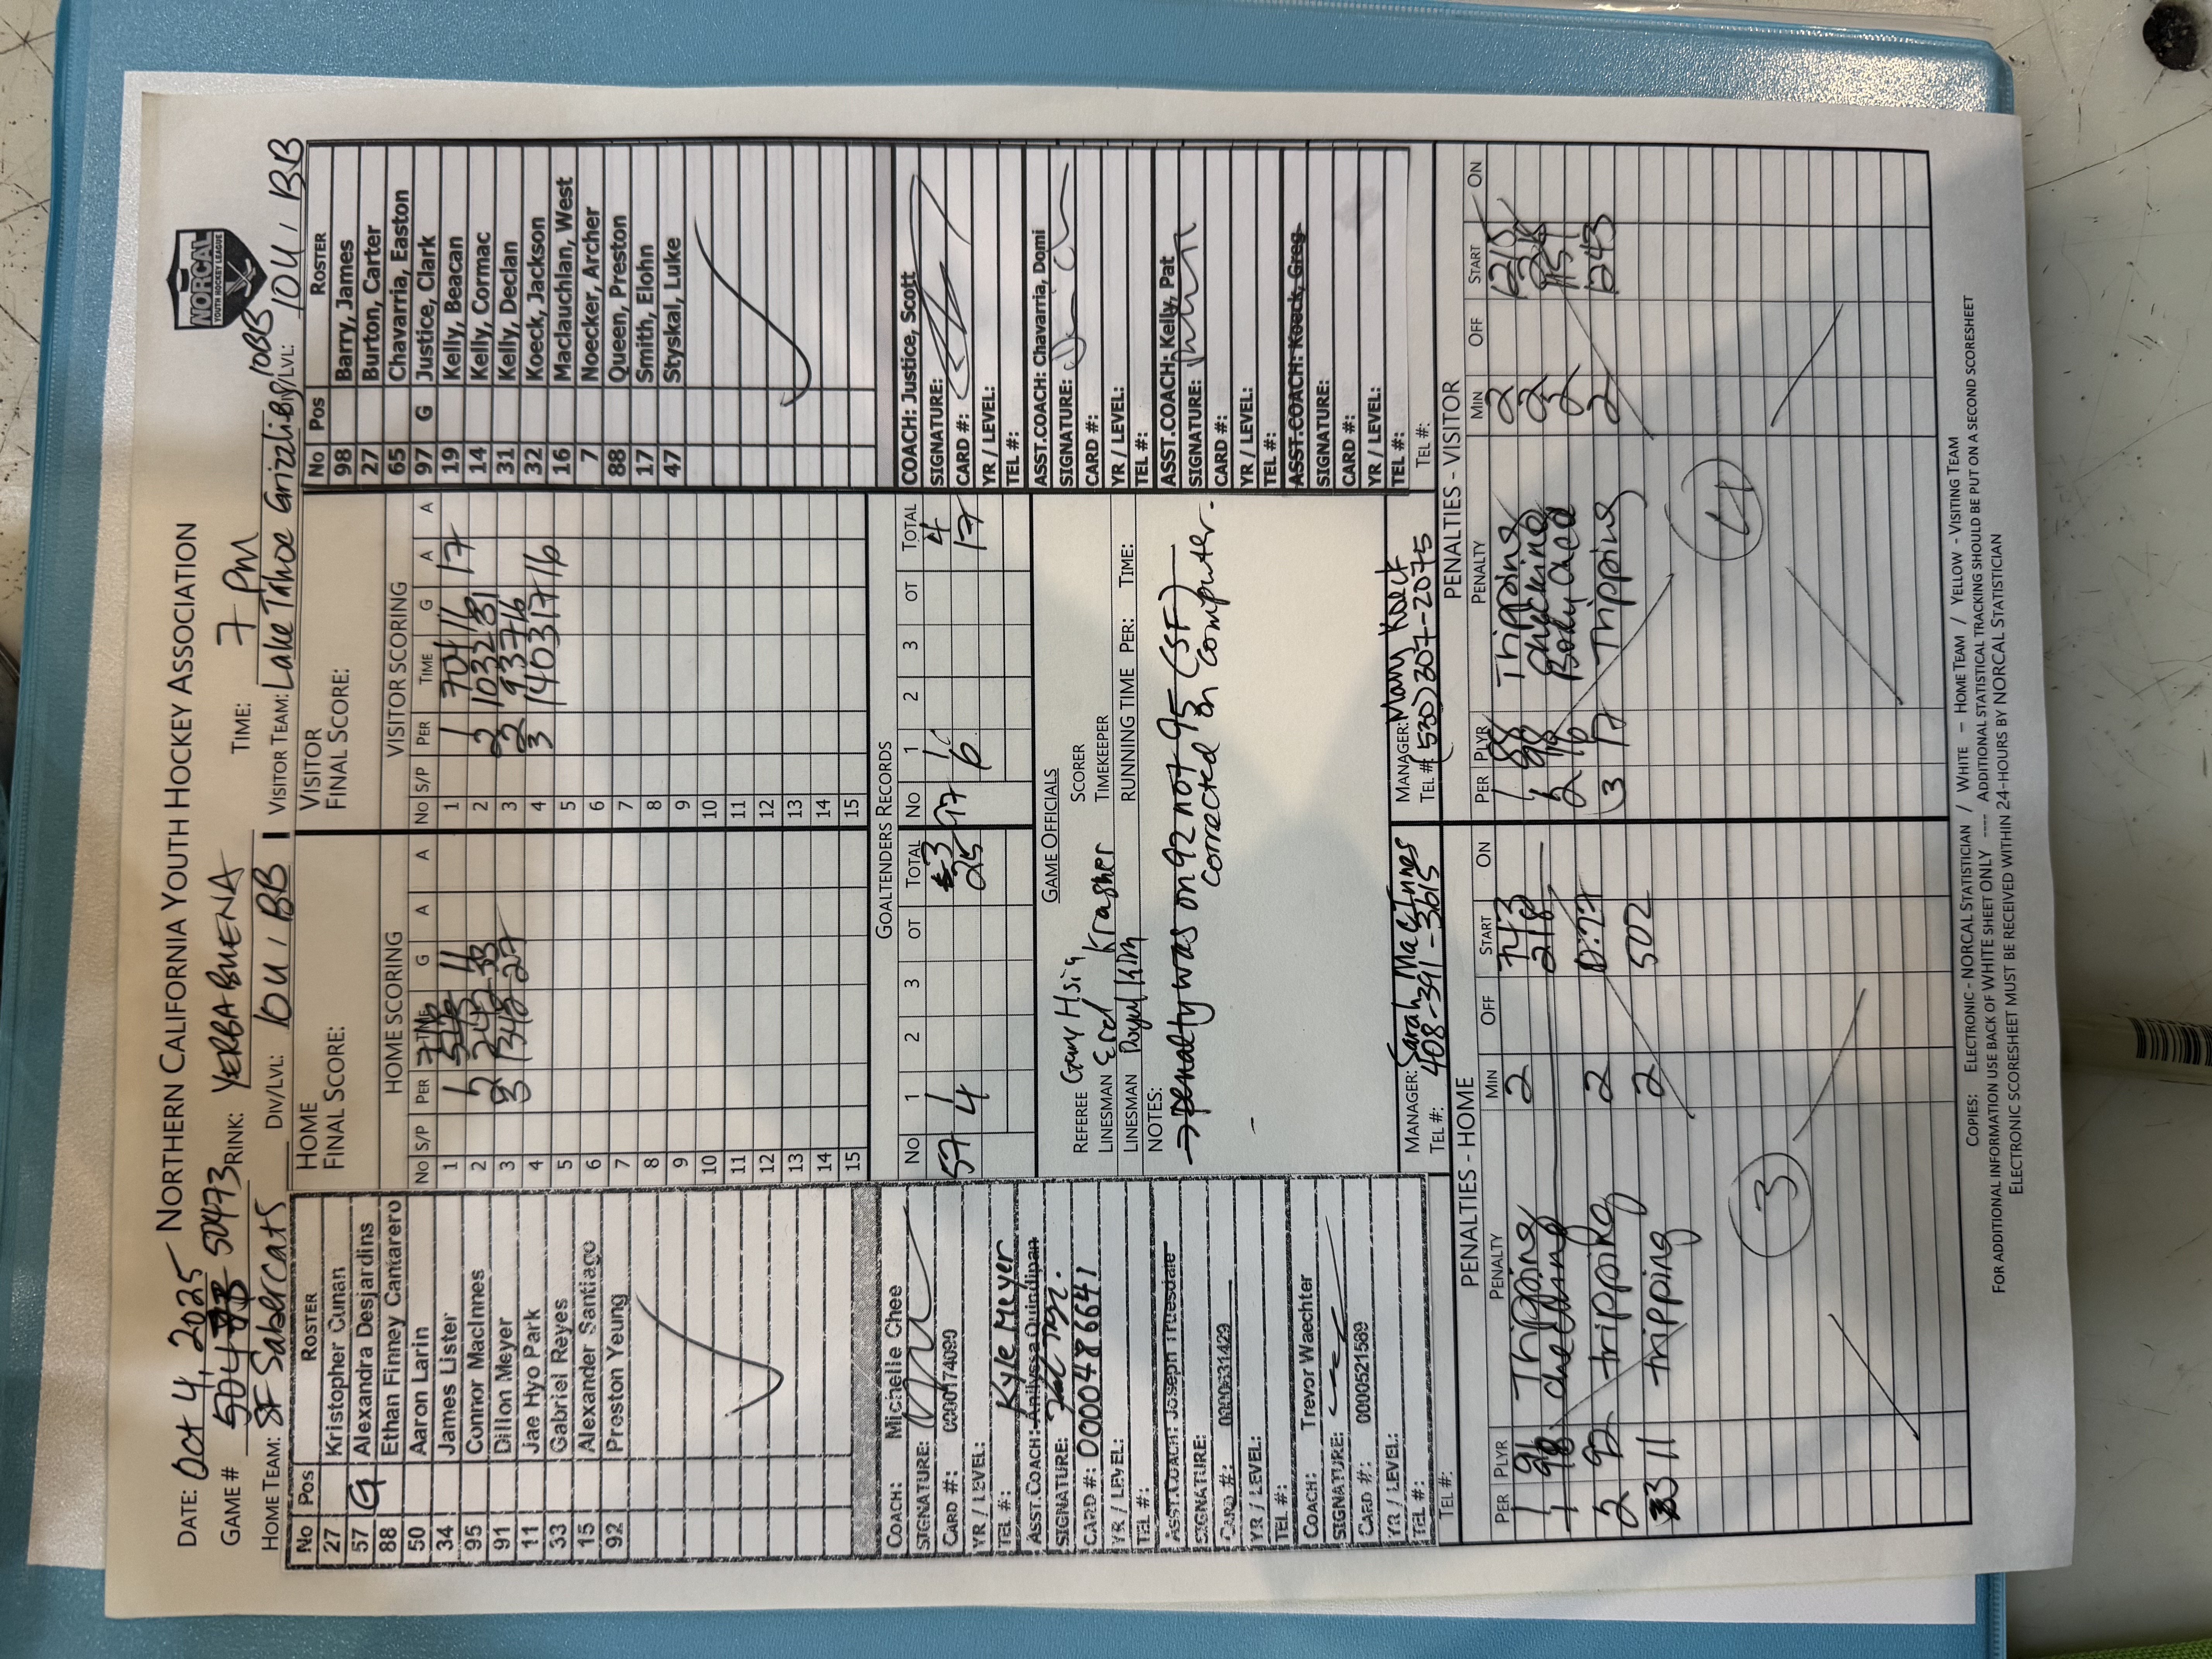 NORCAL
YOUTH HOCKEY LEAGUE
NORTHERN CALIFORNIA YOUTH HOCKEY ASSOCIATION
DATE: Oct 4, 2025
GAME # 50473 RINK: YERBA BUENA TIME: 7 PM
HOME TEAM: SF Sabercats DIV/LVL: 10U, BB
VISITOR TEAM: Lake Tahoe Grizzlies 10BB /LVL: 10U, BB
No Pos ROSTER
27 Kristopher Cunan
57 G Alexandra Desjardins
88 Ethan Finney Cantarero
50 Aaron Larin
34 James Lister
95 Connor MacInnes
91 Dillon Meyer
11 Jae Hyo Park
33 Gabriel Reyes
15 Alexander Santiago
92 Preston Yeung
HOME
FINAL SCORE:
HOME SCORING
No S/P PER TIME G A A
1 1 11
2 2 242 33
3 3 1348 27
4
5
6
7
8
9
10
11
12
13
14
15
VISITOR
FINAL SCORE:
VISITOR SCORING
No S/P PER TIME G A A
1 1 704 16 17
2 2 1032 31
3 2 937 16
4 3 1403 17 16
5
6
7
8
9
10
11
12
13
14
15
No Pos ROSTER
98 Barry, James
27 Burton, Carter
65 Chavarria, Easton
97 G Justice, Clark
19 Kelly, Beacan
14 Kelly, Cormac
31 Kelly, Declan
32 Koeck, Jackson
16 Maclauchlan, West
7 Noecker, Archer
88 Queen, Preston
17 Smith, Elohn
47 Styskal, Luke
COACH: Michelle Chee
SIGNATURE:
CARD #: 0000174099
YR / LEVEL:
TEL #:
Kyle Meyer
ASST.COACH: Anilyssa Quindipan
SIGNATURE:
CARD #: 0000486641
YR / LEVEL:
TEL #:
ASST.COACH: Joseph Truesdale
SIGNATURE:
CARD #: 0000631429
YR / LEVEL:
TEL #:
COACH: Trevor Waechter
SIGNATURE:
CARD #: 0000521589
YR / LEVEL:
TEL #:
TEL #:
GOALTENDERS RECORDS
No 1 2 3 OT TOTAL No 1 2 3 OT TOTAL
57 1 3 97 1 4
4 25 6 17
GAME OFFICIALS
REFEREE Gary Hsia SCORER
LINESMAN Krasher TIMEKEEPER
LINESMAN Kim RUNNING TIME PER: TIME:
NOTES:
→ penalty was on 92 not 95 (SF)
corrected on computer.
MANAGER: Sarah MacInnes
TEL #: 408-391-3615
MANAGER: Mary Koeck
TEL # (530) 307-2075
COACH: Justice, Scott
SIGNATURE:
CARD #:
YR / LEVEL:
TEL #:
ASST.COACH: Chavarria, Domi
SIGNATURE:
CARD #:
YR / LEVEL:
TEL #:
ASST.COACH: Kelly, Pat
SIGNATURE:
CARD #:
YR / LEVEL:
TEL #:
ASST.COACH: Koeck, Greg
SIGNATURE:
CARD #:
YR / LEVEL:
TEL #:
TEL #:
PENALTIES - HOME
PER PLYR PENALTY MIN OFF START ON
1 91 Tripping 2 743
1 98 218
2 92 tripping 2
3 11 tripping 2 502
3
PENALTIES - VISITOR
PER PLYR PENALTY MIN OFF START ON
1 88 Tripping 2
1 98 Checking 2
2 16 Body 2
3 17 Tripping 2 1243
4
COPIES: ELECTRONIC - NORCAL STATISTICIAN / WHITE – HOME TEAM / YELLOW - VISITING TEAM
FOR ADDITIONAL INFORMATION USE BACK OF WHITE SHEET ONLY ---- ADDITIONAL STATISTICAL TRACKING SHOULD BE PUT ON A SECOND SCORESHEET
ELECTRONIC SCORESHEET MUST BE RECEIVED WITHIN 24-HOURS BY NORCAL STATISTICIAN